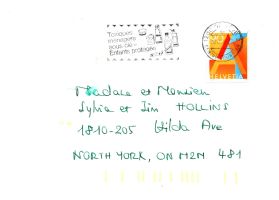 Toxiques
ménagers
sous clé =
Enfants protégés
HELVETIA
Madame et Monsieur
Sylvia et Jim HOLLINS
1810-205 Hilda Ave
NORTH YORK, ON M2M 4B1